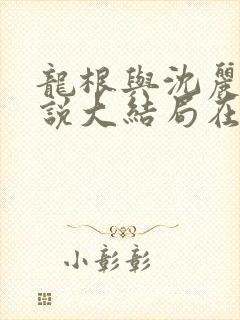 龍根與沈麗
說大結局在
小彰彰